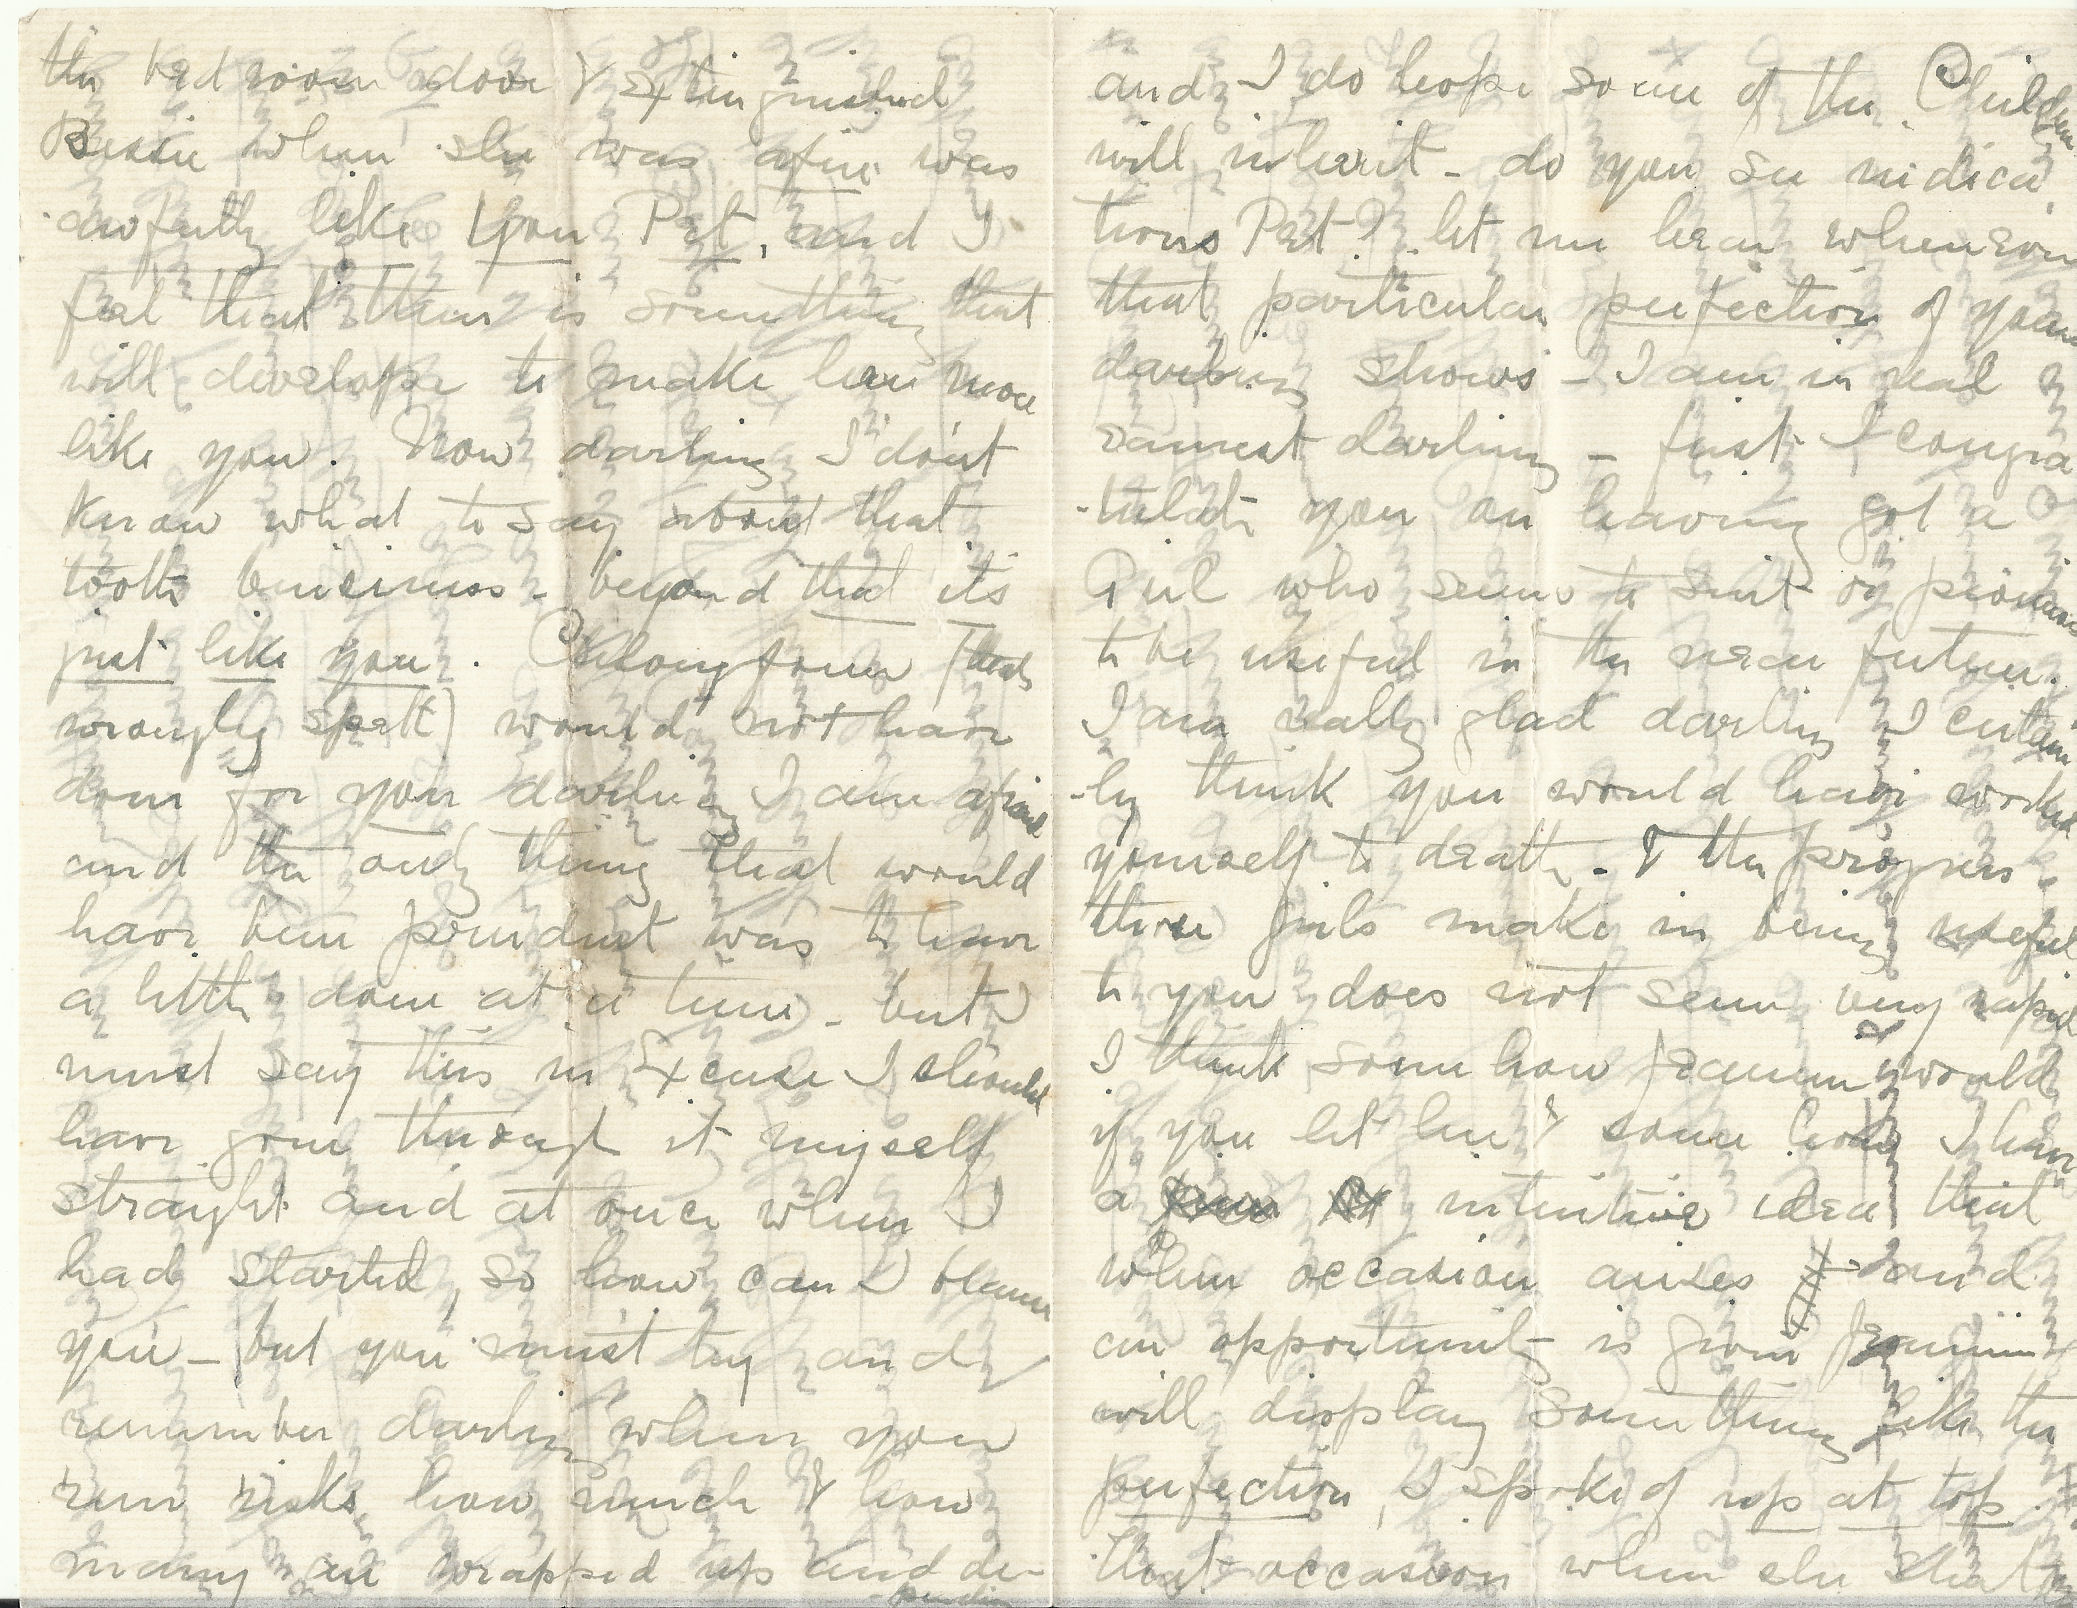 the bedroom door & extinguished
Bessie when she was afire was
awfully like you Pet, and I
feel that there is something that
will develope to make her more
like you. Now darling I don't
know what to say about that
tooth business - beyond that its
just like you. Chlorofourm (thats
wrongly spelt) would not have
done for you darling I am afraid
and the only thing that would
have been prudent was to have
a little done at a time - but I
must say this in Excuse I should
have gone through it myself
straight and at once when I
had started, so how can I blame
you - but you must try and
remember darling when you
run risks how much & how
many are wrapped up and de-
-pending
and I do hope some of the Children
will inherit - do you see indica
tions Pet? let me hear whenever
that particular perfection of yours
darling shows - I am in real
earnest darling - first I congra
-tulate you on having got a
Girl who seems to suit or promises
to be useful in the near future.
I am really glad darling I certain
-ly think you would have worked
yourself to death - & the progress
those girls make in being useful
to you does not seem very rapid
I think some how would
if you let her & some how I have
a intuitive idea that
when occasion arises and
an opportunity is given
will display something like the
perfection I spoke of up at top.
That occasion when she shut